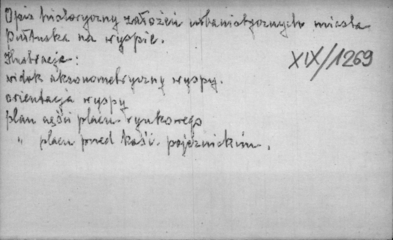 Opis historyczny założeń urbanistycznych miasta
Pułtuska na wyspie.
XIX/1269
Ilustracje:
widok aksonometryczny wyspy.
orientacja wyspy
plan części placu rynkowego
" placu przed kość. pojezuickim.